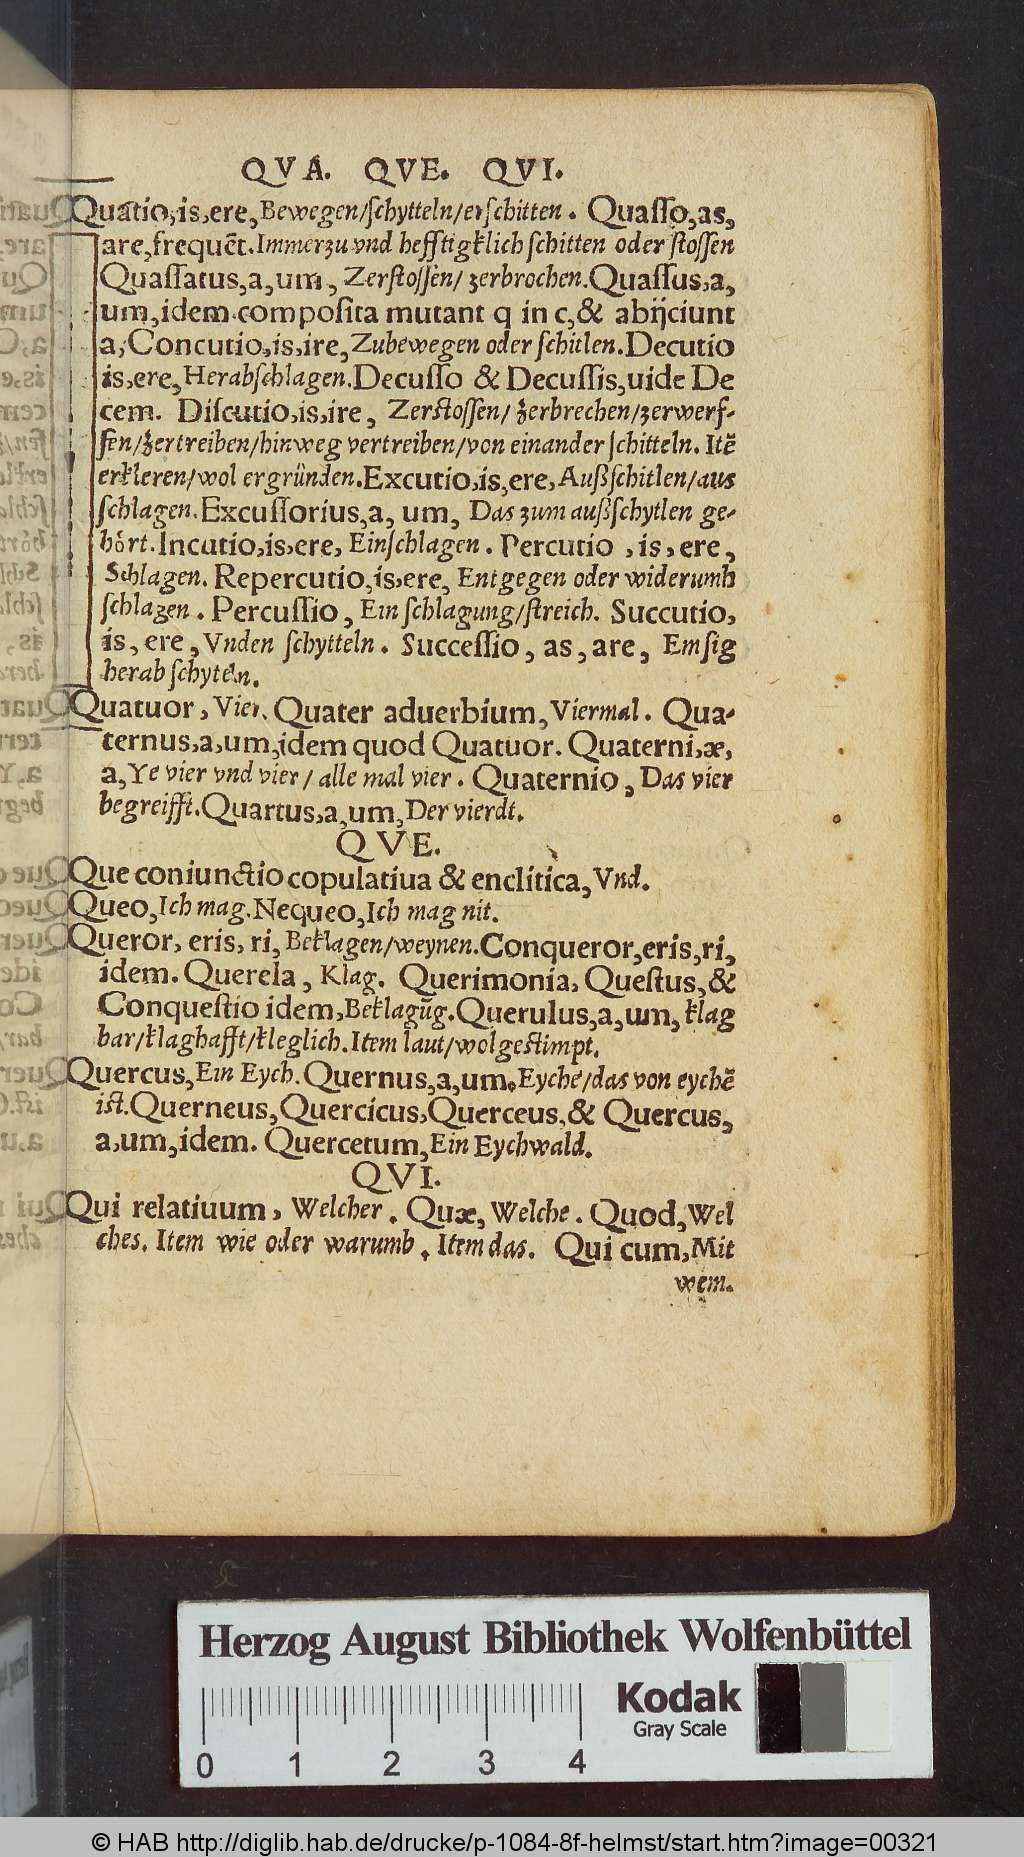 QVA. QVE. QVI.
Quatio,is,ere, Bewegen/ſchytteln/erſchitten. Quaſſo,as,
are,frequēt.Immerzu vnd hefftigklich ſchitten oder ſtoſſen
Quaſſatus,a,um, Zerſtoſſen/ zerbrochen.Quaſſus,a,
um,idem.compoſita mutant q in c,& abijciunt
a,Concutio,is,ire,Zubewegen oder ſchitlen.Decutio
is,ere,Herabſchlagen.Decuſſo & Decuſſis,uide De
cem. Diſcutio,is,ire, Zerſtoſſen/ zerbrechen/zerwerf-
fen/zertreiben/hinweg vertreiben/von einander ſchitteln. Itē
erkleren/wol ergründen.Excutio,is,ere,Außſchitlen/aus
ſchlagen.Excuſſorius,a, um, Das zum außſchytlen ge-
hört.Incutio,is,ere, Einſchlagen. Percutio ,is,ere,
Schlagen. Repercutio,is,ere, Entgegen oder widerumb
ſchlagen. Percuſſio, Ein ſchlagung/ſtreich. Succutio,
is, ere, Vnden ſchytteln. Succeſſio, as, are, Emſig
herab ſchyteln.
Quatuor, Vier. Quater aduerbium,Viermal. Qua-
ternus,a,um,idem quod Quatuor. Quaterni,æ,
a,Ye vier vnd vier/ alle mal vier. Quaternio, Das vier
begreifft.Quartus,a,um,Der vierdt.
QVE.
Que coniunctio copulatiua & enclitica,Vnd.
Queo,Ich mag.Nequeo,Ich mag nit.
Queror, eris, ri, Beklagen/weynen.Conqueror,eris,ri,
idem. Querela, Klag. Querimonia, Queſtus,&
Conqueſtio idem,Beklagūg.Querulus,a,um, klag
bar/klaghafft/kleglich.Item laut/wolgeſtimpt.
Quercus,Ein Eych.Quernus,a,um.Eyche/das von eychē
iſt.Querneus,Quercicus,Querceus,& Quercus,
a,um,idem. Quercetum,Ein Eychwald.
QVI.
Qui relatiuum, Welcher. Quæ, Welche. Quod,Wel
ches. Item wie oder warumb. Item das. Qui cum,Mit
wem.
Herzog August Bibliothek Wolfenbüttel
Kodak
Gray Scale
0 1 2 3 4
© HAB http://diglib.hab.de/drucke/p-1084-8f-helmst/start.htm?image=00321